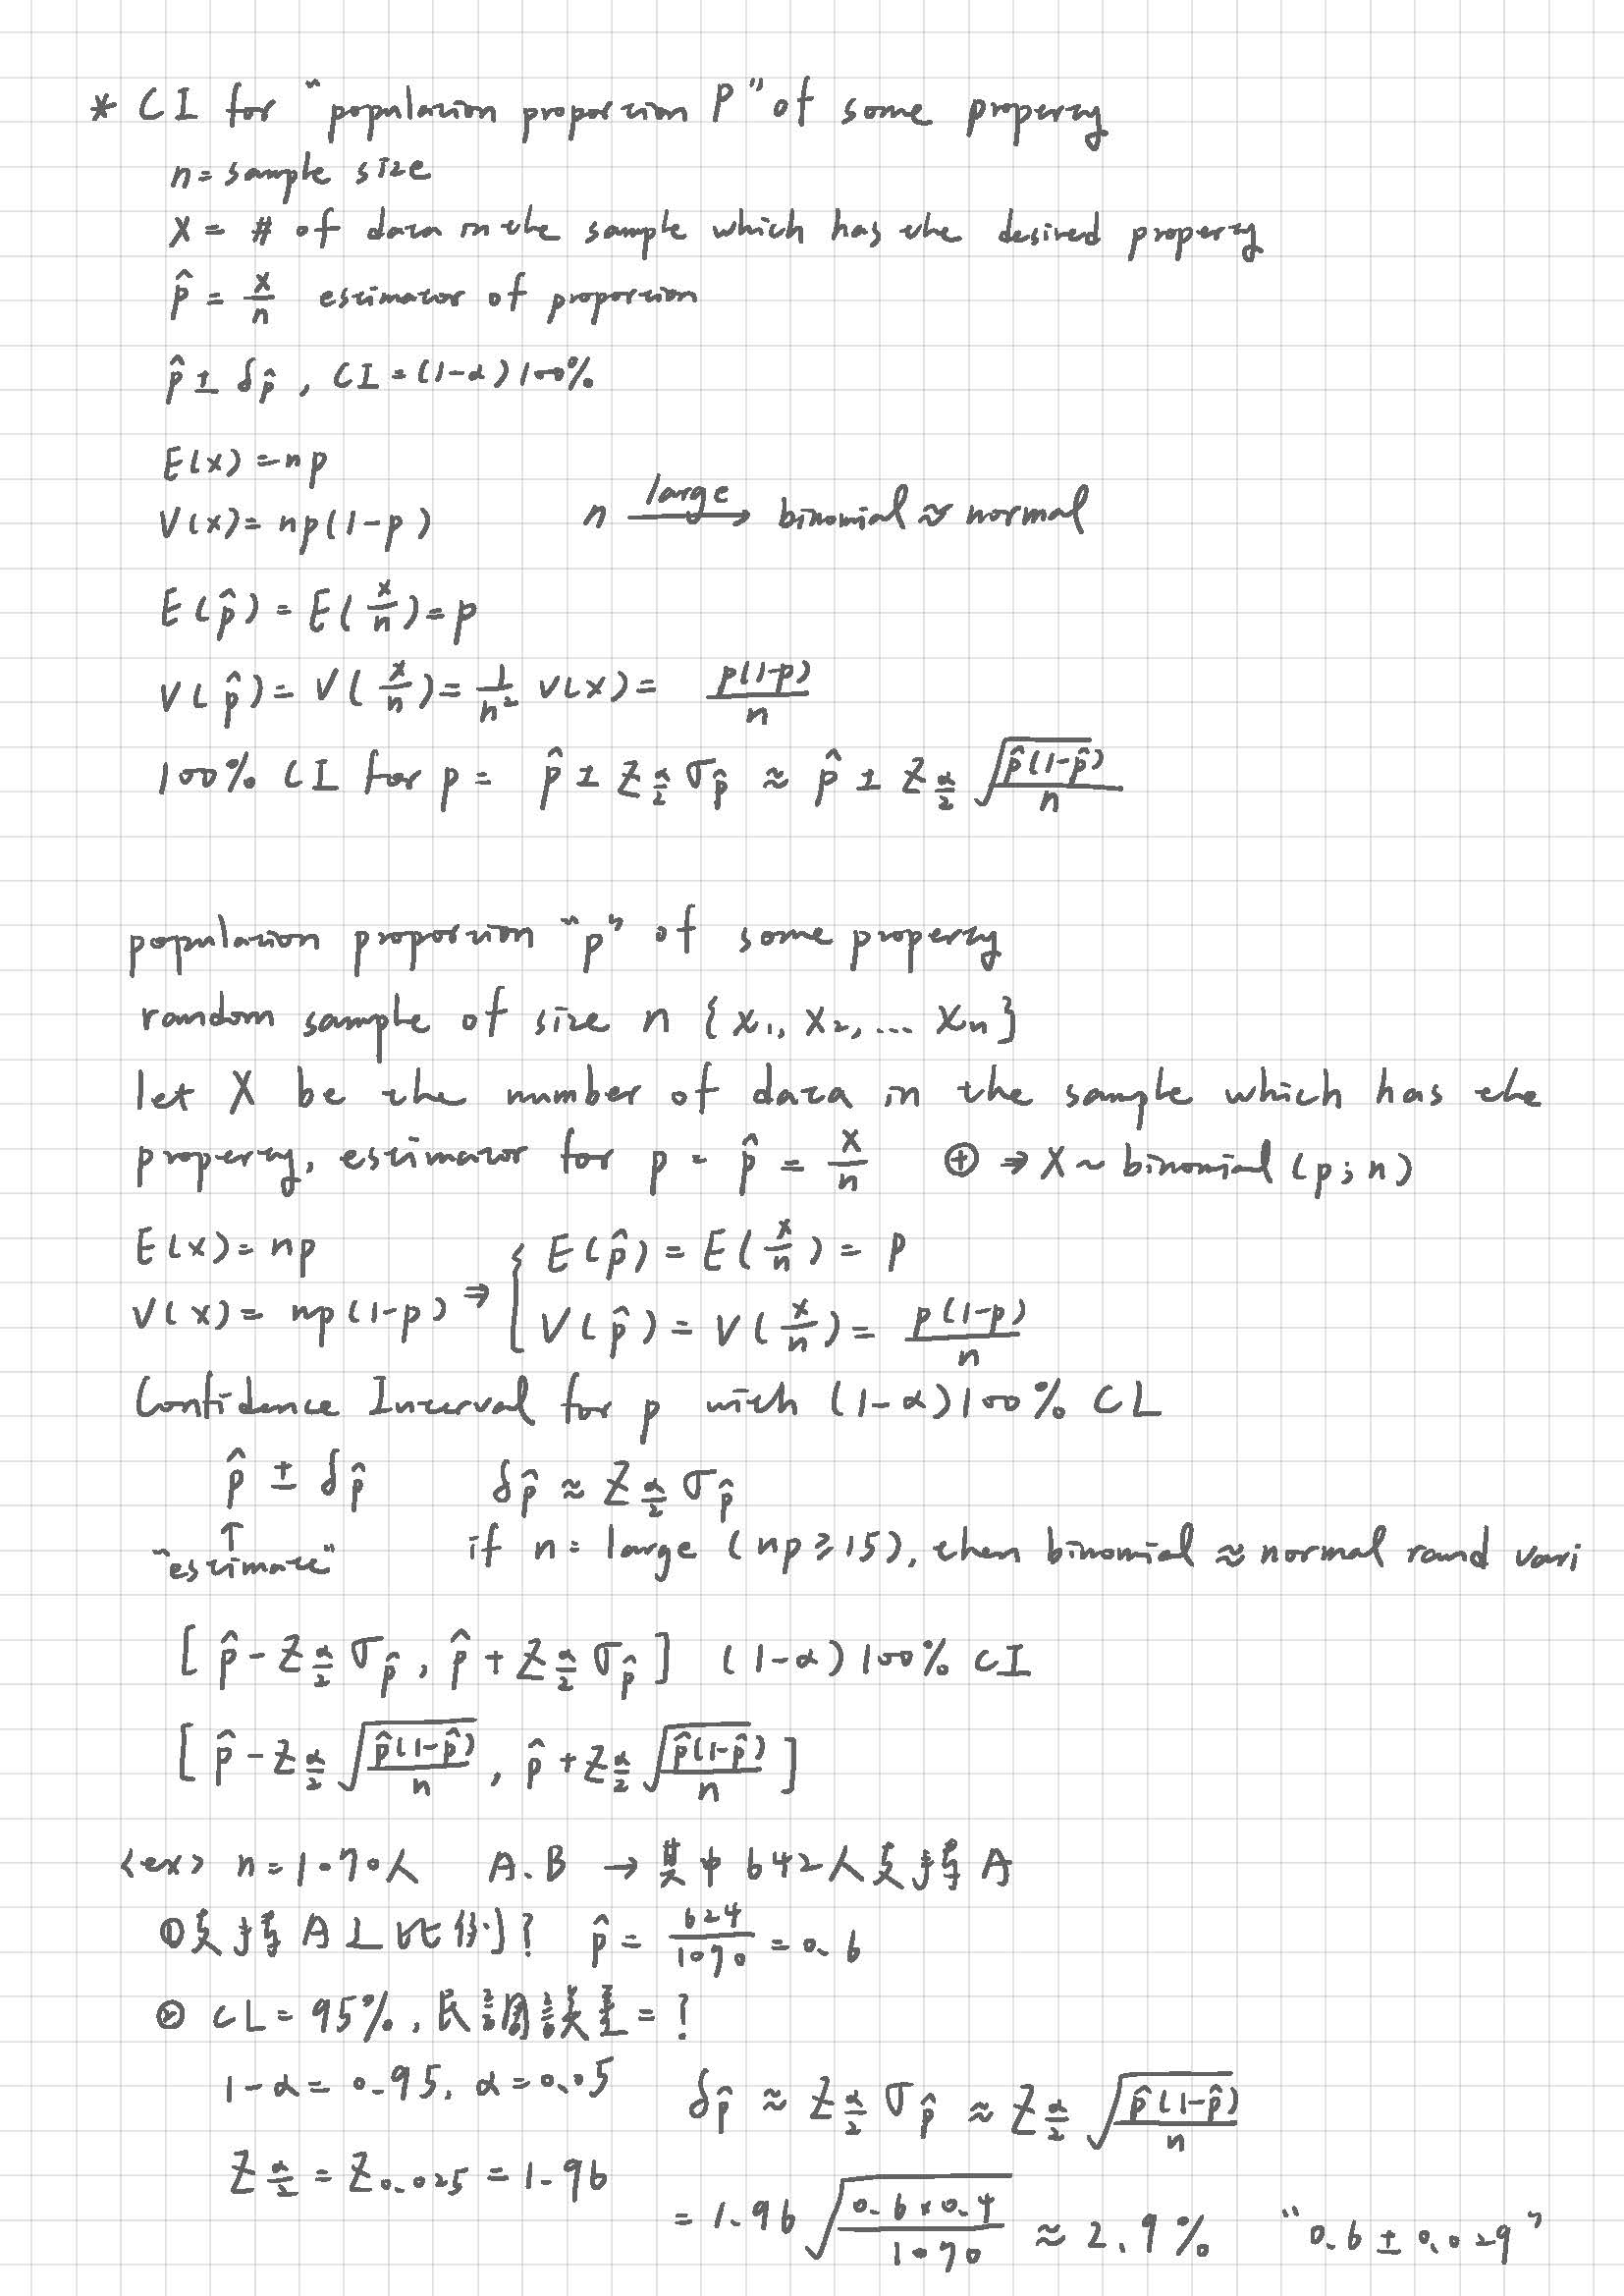 * CI for "population proportion P" of some property
n = sample size
X = # of data in the sample which has the desired property
p̂ = x/n estimator of proportion
p̂ ± δp̂, CI = (1-α)100%
E(x) = np
V(x) = np(1-p) n —large→ binomial ≈ normal
E(p̂) = E(x/n) = p
V(p̂) = V(x/n) = 1/n² V(x) = p(1-p)/n
100% CI for p = p̂ ± Z_{α/2} σp̂ ≈ p̂ ± Z_{α/2} √(p̂(1-p̂)/n)
population proportion "p" of some property
random sample of size n {x₁, x₂, ... xn}
let X be the number of data in the sample which has the
property, estimator for p = p̂ = x/n ⊕ ⇒ X ~ binomial (p; n)
E(x) = np ⇒ { E(p̂) = E(x/n) = p
V(x) = np(1-p) V(p̂) = V(x/n) = p(1-p)/n
Confidence Interval for p with (1-α)100% CL
p̂ ± δp̂ δp̂ ≈ Z_{α/2} σp̂
↑
"estimate" if n = large (np ≥ 15), then binomial ≈ normal rand vari
[p̂ - Z_{α/2} σp̂, p̂ + Z_{α/2} σp̂] (1-α)100% CI
[p̂ - Z_{α/2} √(p̂(1-p̂)/n), p̂ + Z_{α/2} √(p̂(1-p̂)/n)]
<ex> n = 1070人 A.B → 其中642人支持A
①支持A之比例? p̂ = 624/1070 = 0.6
② CL = 95%, 民調誤差 = ?
1-α = 0.95, α = 0.05 δp̂ ≈ Z_{α/2} σp̂ ≈ Z_{α/2} √(p̂(1-p̂)/n)
Z_{α/2} = Z_{0.025} = 1.96 = 1.96 √(0.6×0.4/1070) ≈ 2.9% "0.6 ± 0.029"